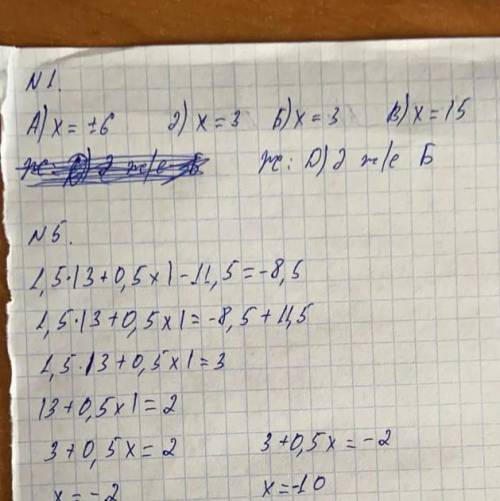 N1.
А) x = ±6 2) x = 3 Б) x = 3 В) x = 15
ж: D) 2 ж/е Б
N5.
1,5·|3+0,5x|-11,5=-8,5
1,5·|3+0,5x|=-8,5+11,5
1,5·|3+0,5x|=3
|3+0,5x|=2
3+0,5x=2 3+0,5x=-2
x=-2 x=-10